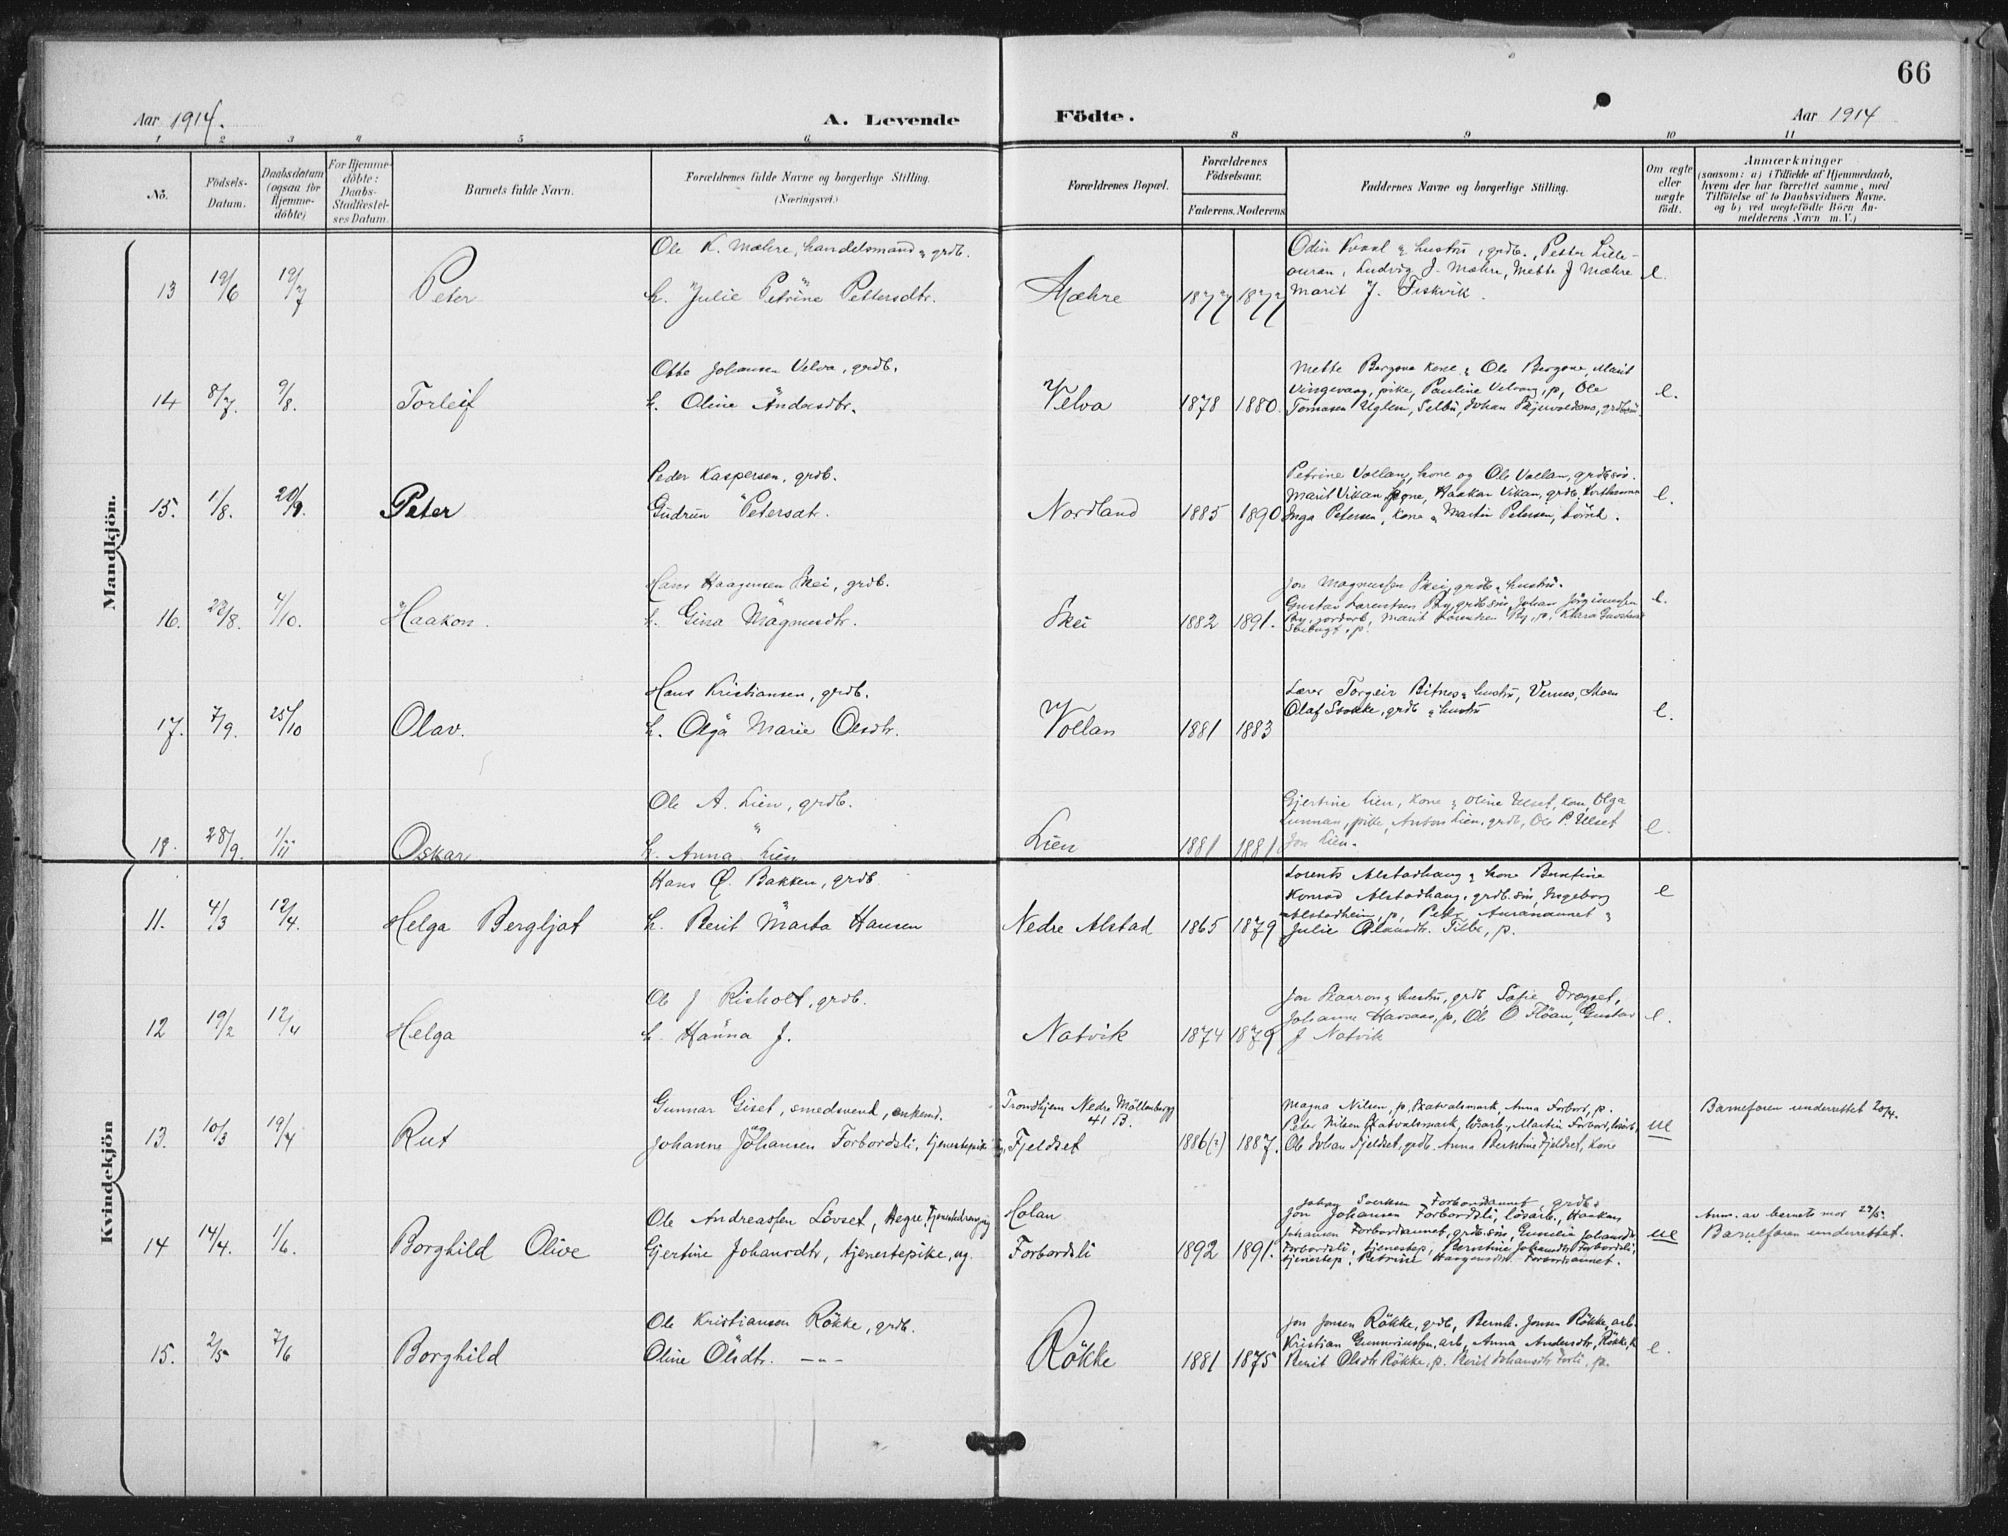 66
Aar 1914.
A. Levende Födte.
Aar 1914
1 2 3 4 5 6 8 9 10 11
No.
Födsels-Datum.
Daabsdatum (ogsaa for Hjemme-döbte)
For Hjemme-döbte: Daabs-Stadfæstel-ses Datum.
Barnets fulde Navn.
Forældrenes fulde Navne og borgerlige Stilling.
(Næringsvei.)
Forældrenes Bopæl.
Forældrenes Födselsaar.
Faderens. Moderens
Faddernes Navne og borgerlige Stilling.
Om ægte eller uægte födt.
Anmærkninger
(saasom: a) i Tilfælde af Hjemmedaab,
hvem der har forrettet samme, med
Tilföielse af to Daabsvidners Navne.
og b) ved uægtefödte Börn An-
melderens Navn m. V.)
Mandkjön.
Ole K. Mæhre, handelsmand " grdb.
13 19/6 19/7 Peter h. Julie Petrine Pettersdtr. Mæhre 1877 1877
Odin Kvaal " hustru, grdb., Peter Lille-
auran, Ludvig J. Mæhre, Mette J Mæhre
Marit J. Fiskvik.
e.
Otto Johansen Velva, grdb.
14 8/7. 9/8. Torleif h. Oline Andersdtr. Velva 1878 1880.
Mette Bergsve kone " Ole Bergsve, Marit
Vingevaag, pike, Pauline , p, Ole
Tomasen Uglem, Selbu, Johan
e.
Peder Kaspersen, grdb.
15. 1/8. 20/9. Peter Gudrun Petersdt. Nordland 1885 1890
Petrine Vollan, kone og Ole Vollan, grdbsøn.
Marit Vikan , Haakon Vikan, grdb,
Inga Petersen, kone " Martin Petersen,
e.
Hans Haagensen Skei, grdb.
16. 22/8. 4/10. Haakon. h. Gina Magnusdtr. Skei 1882 1891.
Jon Magnussen Skei, grdb " hustru.
Gustav Lorentsen By, grdbsøn, Johan
By, , Marit Lorentsen By, p, Klara
e.
Hans Kristiansen, grdb.
17. 7/9. 25/10 Olav. h. Olga Marie Olsdtr. Vollan 1881 1883
Lærer Torgeir Bitnes " hustru, Vernes, Moen
Olaf , grdb " hustru
e.
Ole A. Lien, grdb.
18. 28/9. 1/11 Oskar h. Anna Lien Lien 1881 1881.
Gjertine Lien, kone " Oline Ulset, kone, Olga
Lunnan, pike, Anton Lien, grdb, Ole P. Ulset
Jon Lien.
e.
Kvindekjön
Hans O. Bakken, grdb
11. 4/3 12/4. Helga Bergljot h. Berit Marta Hansen Nedre Alstad 1865 1879
Lorents Alstadhaug " kone Berntine
Konrad Alstadhaug, grdb.søn, Ingeborg
Alstadheim, p, Peter Auranaunet "
Julie Tilbe, p.
e
Ole J Risholt, grdb.
12 19/2 12/4 Helga h. Hanna J. Natvik 1874 1879
Jon " hustru, grdb, Sofie Dragset,
Johanne , p, Ole O Fløan, Gustav
J Natvik
e.
Gunnar Giset, smedsvend, enkemd. Trondhjem Nedre Möllenberg
41 B.
13. 10/3 19/4 Rut Johanne Johansen Forbordsli, tjenestepike Fjeldset 1886(?) 1887.
Magna Nilsen, p, Skatvalsmark, Anna Forbord, p.
Peter Nilsen Skatvalsmark, lösarb., Martin Forbord, lösarb,
Ole Johan Fjeldset, grdb. Anna Berntine Fjeldset, kone
ue
Barnefaren underrettet 20/4.
Ole Andreassen Lövset, Hegre, Holan
14 14/4. 1/6. Borghild Olive Gjertine Johansdtr, tjenestepike, ug. Forbordsli 1892 1891.
Forbordaunet, grdb.
Jon Johansen Forbordsli, lösarb., Haakon
Johansen Forbordaunet, grdb.søn, Gunelia Johansdtr
Forbordsli, tjenestep, Berntine Johansdtr Forbordsli,
tjenestep, Petrine Haagensdtr Forbordaunet.
ue
Anm. av barnets mor 29/5.
Barnefaren underrettet.
Ole Kristiansen Rökke, grdb.
15. 2/5 7/6 Borghild Oline Olsdtr. — " — Rökke 1881 1875
Jon Jonsen Rökke, grdb, Bernh. Jonsen Rökke, arb.
Kristian Gunneriussen, arb, Anna Andersdtr, Rökke, k
Berit Olsdtr Rökke, p. Berit Johansdtr , p.
e.